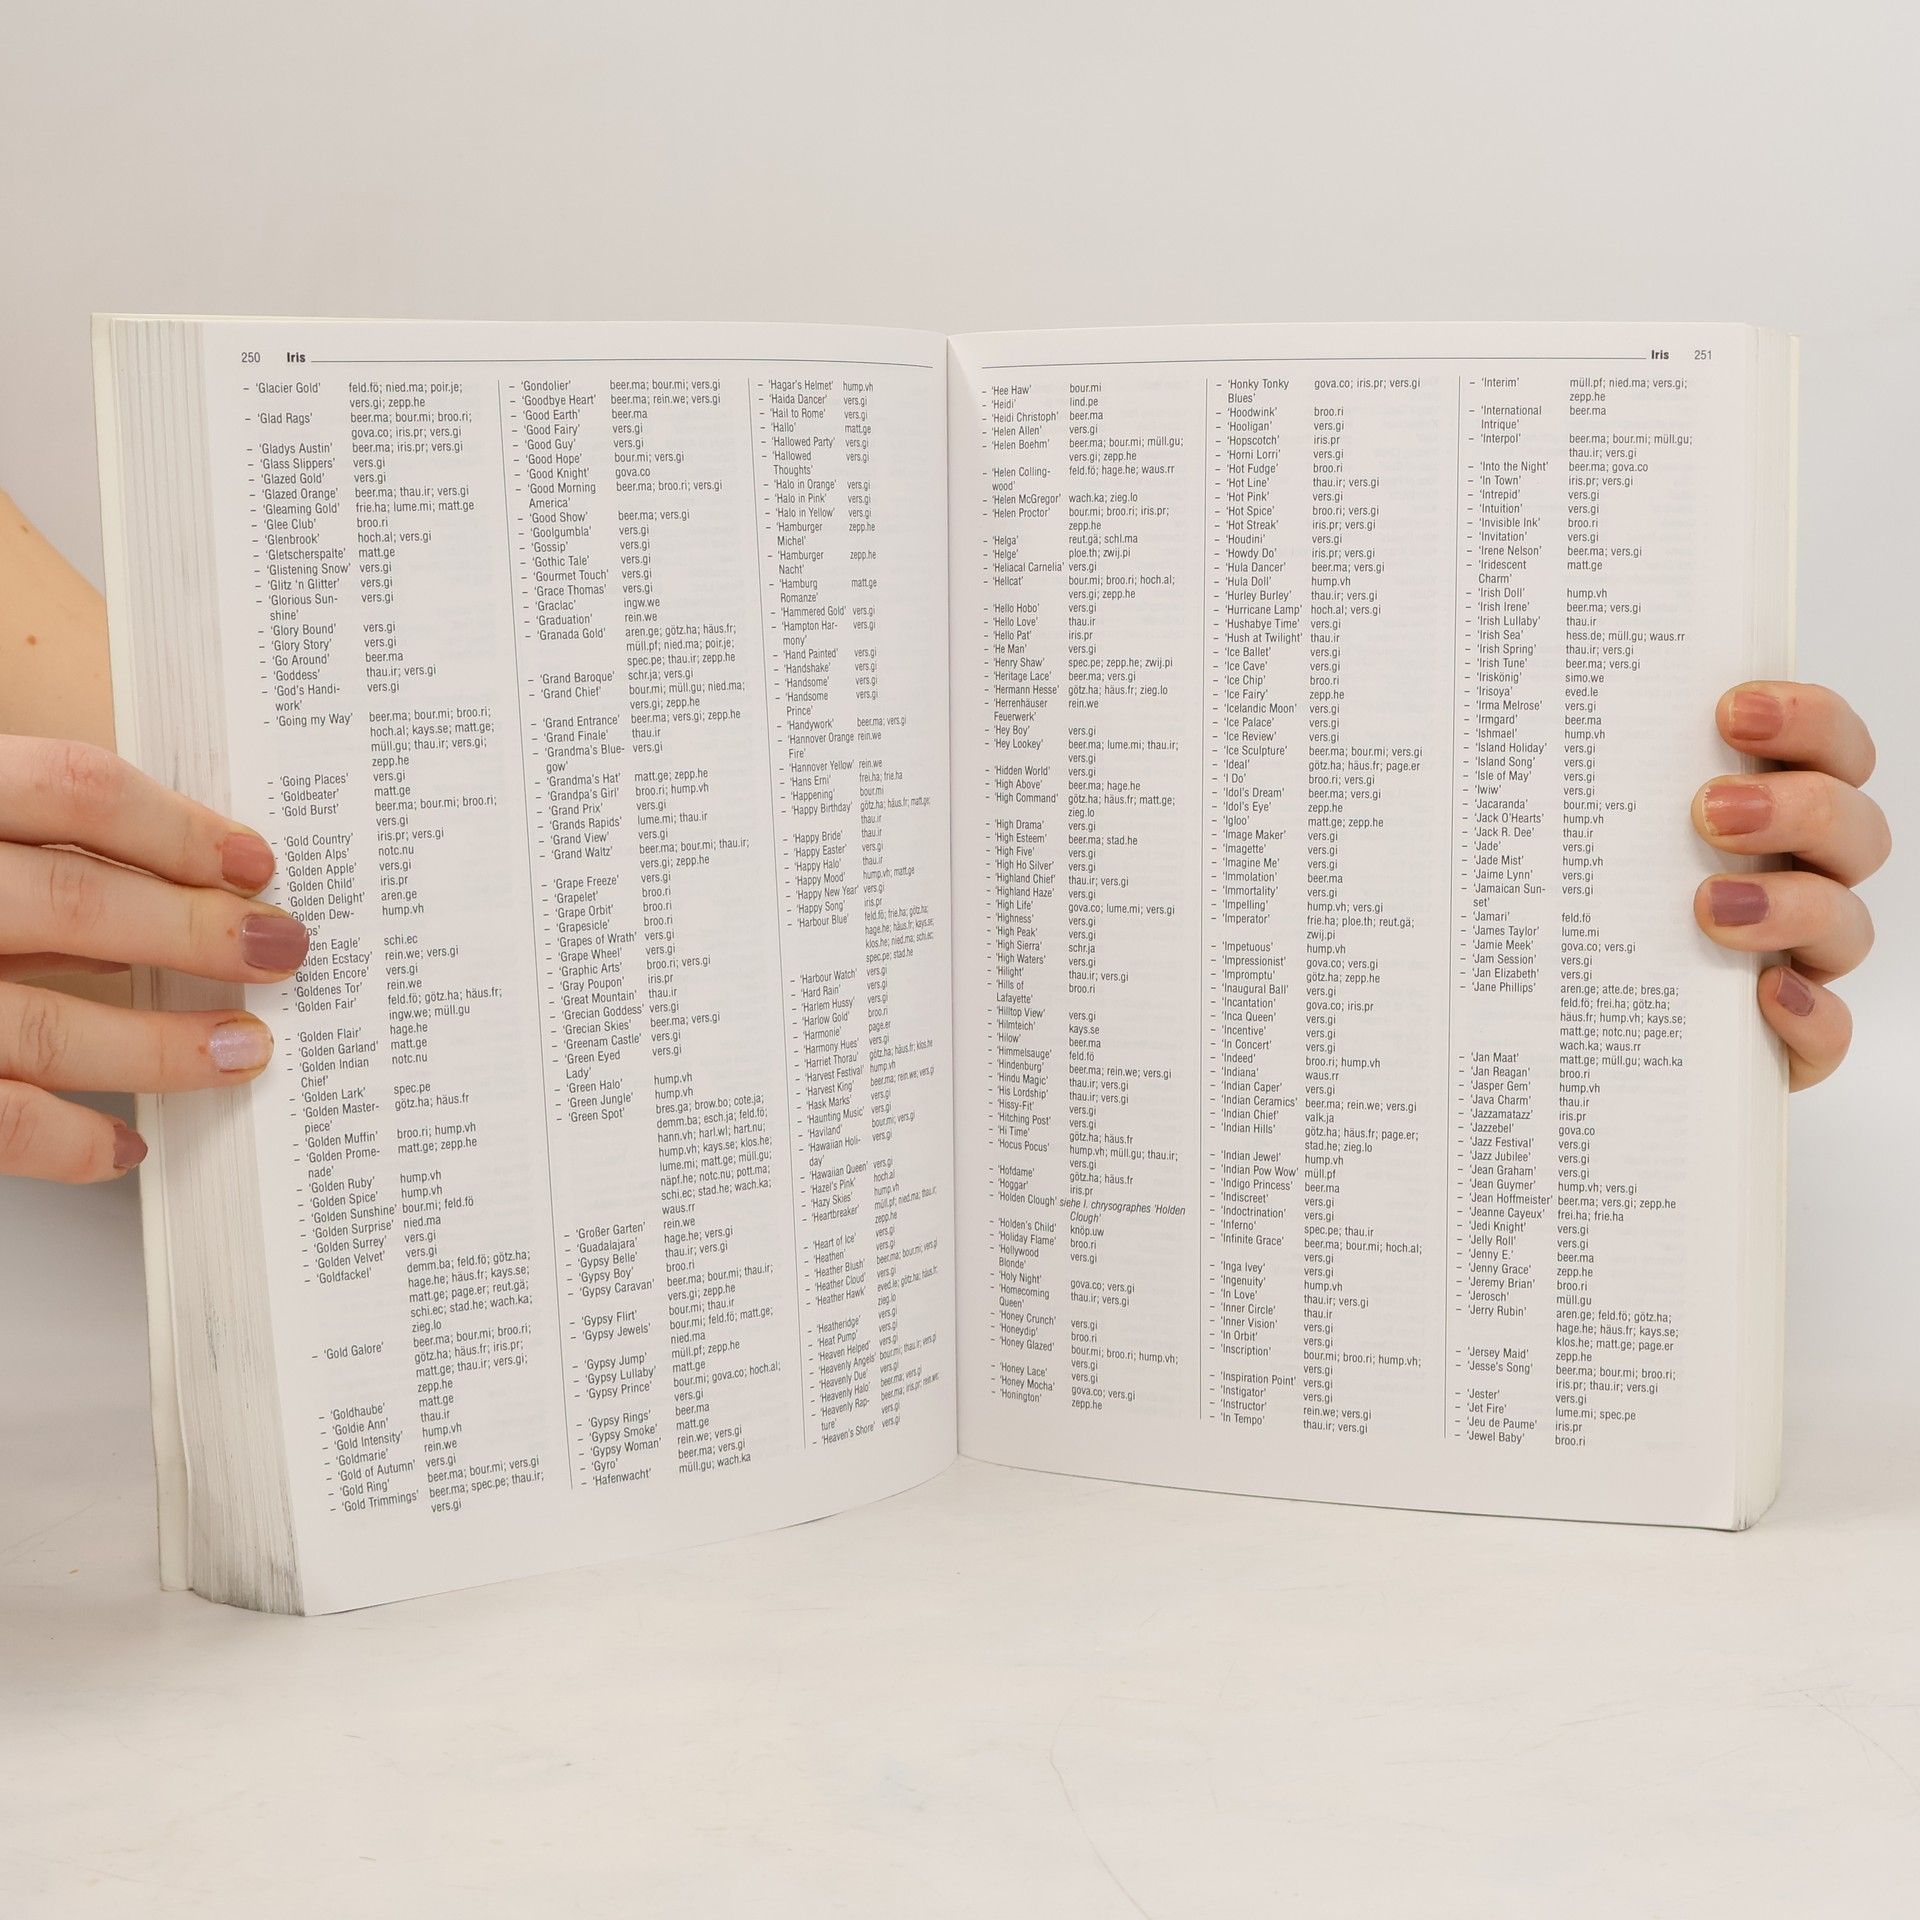 250 Iris
– 'Glacier Gold' feld.fö; nied.ma; poir.je;
vers.gi; zepp.he
– 'Glad Rags' beer.ma; bour.mi; broo.ri;
gova.co; iris.pr; vers.gi
– 'Gladys Austin' beer.ma; iris.pr; vers.gi
– 'Glass Slippers' vers.gi
– 'Glazed Gold' vers.gi
– 'Glazed Orange' beer.ma; thau.ir; vers.gi
– 'Gleaming Gold' frie.ha; lume.mi; matt.ge
– 'Glee Club' broo.ri
– 'Glenbrook' hoch.al; vers.gi
– 'Gletscherspalte' matt.ge
– 'Glistening Snow' vers.gi
– 'Glitz 'n Glitter' vers.gi
– 'Glorious Sun- vers.gi
shine'
– 'Glory Bound' vers.gi
– 'Glory Story' vers.gi
– 'Go Around' beer.ma
– 'Goddess' thau.ir; vers.gi
– 'God's Handi- vers.gi
work'
– 'Going my Way' beer.ma; bour.mi; broo.ri;
hoch.al; kays.se; matt.ge;
müll.gu; thau.ir; vers.gi;
zepp.he
– 'Going Places' vers.gi
– 'Goldbeater' matt.ge
– 'Gold Burst' beer.ma; bour.mi; broo.ri;
vers.gi
– 'Gold Country' iris.pr; vers.gi
– 'Golden Alps' notc.nu
– 'Golden Apple' vers.gi
– 'Golden Child' iris.pr
– 'Golden Delight' aren.ge
'Golden Dew- hump.vh
ps'
den Eagle' schi.ec
olden Ecstacy' rein.we; vers.gi
'Golden Encore' vers.gi
– 'Goldenes Tor' rein.we
– 'Golden Fair' feld.fö; götz.ha; häus.fr;
ingw.we; müll.gu
– 'Golden Flair' hage.he
– 'Golden Garland' matt.ge
– 'Golden Indian notc.nu
Chief'
– 'Golden Lark' spec.pe
– 'Golden Master- götz.ha; häus.fr
piece'
– 'Golden Muffin' broo.ri; hump.vh
– 'Golden Prome- matt.ge; zepp.he
nade'
– 'Golden Ruby' hump.vh
– 'Golden Spice' hump.vh
– 'Golden Sunshine' bour.mi; feld.fö
– 'Golden Surprise' nied.ma
– 'Golden Surrey' vers.gi
– 'Golden Velvet' vers.gi
– 'Goldfackel' demm.ba; feld.fö; götz.ha;
hage.he; häus.fr; kays.se;
matt.ge; page.er; reut.gä;
schi.ec; stad.he; wach.ka;
zieg.lo
– 'Gold Galore' beer.ma; bour.mi; broo.ri;
götz.ha; häus.fr; iris.pr;
matt.ge; thau.ir; vers.gi;
zepp.he
– 'Goldhaube' matt.ge
– 'Goldie Ann' thau.ir
– 'Gold Intensity' hump.vh
– 'Goldmarie' rein.we
– 'Gold of Autumn' vers.gi
– 'Gold Ring' beer.ma; bour.mi; vers.gi
– 'Gold Trimmings' beer.ma; spec.pe; thau.ir;
vers.gi
– 'Gondolier' beer.ma; bour.mi; vers.gi
– 'Goodbye Heart' beer.ma; rein.we; vers.gi
– 'Good Earth' beer.ma
– 'Good Fairy' vers.gi
– 'Good Guy' vers.gi
– 'Good Hope' bour.mi; vers.gi
– 'Good Knight' gova.co
– 'Good Morning beer.ma; broo.ri; vers.gi
America'
– 'Good Show' beer.ma; vers.gi
– 'Goolgumbla' vers.gi
– 'Gossip' vers.gi
– 'Gothic Tale' vers.gi
– 'Gourmet Touch' vers.gi
– 'Grace Thomas' vers.gi
– 'Graclac' ingw.we
– 'Graduation' rein.we
– 'Granada Gold' aren.ge; götz.ha; häus.fr;
müll.pf; nied.ma; poir.je;
spec.pe; thau.ir; zepp.he
– 'Grand Baroque' schr.ja; vers.gi
– 'Grand Chief' bour.mi; müll.gu; nied.ma;
vers.gi; zepp.he
– 'Grand Entrance' beer.ma; vers.gi; zepp.he
– 'Grand Finale' thau.ir
– 'Grandma's Blue- vers.gi
gow'
– 'Grandma's Hat' matt.ge; zepp.he
– 'Grandpa's Girl' broo.ri; hump.vh
– 'Grand Prix' vers.gi
– 'Grands Rapids' lume.mi; thau.ir
– 'Grand View' vers.gi
– 'Grand Waltz' beer.ma; bour.mi; thau.ir;
vers.gi; zepp.he
– 'Grape Freeze' vers.gi
– 'Grapelet' broo.ri
– 'Grape Orbit' broo.ri
– 'Grapesicle' broo.ri
– 'Grapes of Wrath' vers.gi
– 'Grape Wheel' vers.gi
– 'Graphic Arts' broo.ri; vers.gi
– 'Gray Poupon' iris.pr
– 'Great Mountain' thau.ir
– 'Grecian Goddess' vers.gi
– 'Grecian Skies' beer.ma; vers.gi
– 'Greenam Castle' vers.gi
– 'Green Eyed vers.gi
Lady'
– 'Green Halo' hump.vh
– 'Green Jungle' hump.vh
– 'Green Spot' bres.ga; brow.bo; cote.ja;
demm.ba; esch.ja; feld.fö;
hann.vh; harl.wl; hart.nu;
hump.vh; kays.se; klos.he;
lume.mi; matt.ge; müll.gu;
näpf.he; notc.nu; pott.ma;
schi.ec; stad.he; wach.ka;
waus.rr
– 'Großer Garten' rein.we
– 'Guadalajara' hage.he; vers.gi
– 'Gypsy Belle' thau.ir; vers.gi
– 'Gypsy Boy' broo.ri
– 'Gypsy Caravan' beer.ma; bour.mi; thau.ir;
vers.gi; zepp.he
– 'Gypsy Flirt' bour.mi; thau.ir
– 'Gypsy Jewels' bour.mi; feld.fö; matt.ge;
nied.ma
– 'Gypsy Jump' müll.pf; zepp.he
– 'Gypsy Lullaby' matt.ge
– 'Gypsy Prince' bour.mi; gova.co; hoch.al;
vers.gi
– 'Gypsy Rings' beer.ma
– 'Gypsy Smoke' matt.ge
– 'Gypsy Woman' rein.we; vers.gi
– 'Gyro' beer.ma; vers.gi
– 'Hafenwacht' müll.gu; wach.ka
– 'Hagar's Helmet' hump.vh
– 'Haida Dancer' vers.gi
– 'Hail to Rome' vers.gi
– 'Hallo' matt.ge
– 'Hallowed Party' vers.gi
– 'Hallowed vers.gi
Thoughts'
– 'Halo in Orange' vers.gi
– 'Halo in Pink' vers.gi
– 'Halo in Yellow' vers.gi
– 'Hamburger zepp.he
Michel'
– 'Hamburger zepp.he
Nacht'
– 'Hamburg matt.ge
Romanze'
– 'Hammered Gold' vers.gi
– 'Hampton Har- vers.gi
mony'
– 'Hand Painted' vers.gi
– 'Handshake' vers.gi
– 'Handsome' vers.gi
– 'Handsome vers.gi
Prince'
– 'Handywork' beer.ma; vers.gi
– 'Hannover Orange rein.we
Fire'
– 'Hannover Yellow' rein.we
– 'Hans Erni' frei.ha; frie.ha
– 'Happening' bour.mi
– 'Happy Birthday' götz.ha; häus.fr; matt.ge;
thau.ir
– 'Happy Bride' thau.ir
– 'Happy Easter' vers.gi
– 'Happy Halo' thau.ir
– 'Happy Mood' hump.vh; matt.ge
– 'Happy New Year' vers.gi
– 'Happy Song' iris.pr
– 'Harbour Blue' feld.fö; frie.ha; götz.ha;
hage.he; häus.fr; kays.se;
klos.he; nied.ma; schi.ec;
spec.pe; stad.he
– 'Harbour Watch' vers.gi
– 'Hard Rain' vers.gi
– 'Harlem Hussy' vers.gi
– 'Harlow Gold' broo.ri
– 'Harmonie' page.er
– 'Harmony Hues' vers.gi
– 'Harriet Thorau' götz.ha; häus.fr; klos.he
– 'Harvest Festival' hump.vh
– 'Harvest King' beer.ma; rein.we; vers.gi
– 'Hask Marks' vers.gi
– 'Haunting Music' vers.gi
– 'Haviland' bour.mi; vers.gi
– 'Hawaiian Holi- vers.gi
day'
– 'Hawaiian Queen' vers.gi
– 'Hazel's Pink' hoch.al
– 'Hazy Skies' hump.vh
– 'Heartbreaker' müll.pf; nied.ma; thau.ir;
zepp.he
– 'Heart of Ice' vers.gi
– 'Heathen' vers.gi
– 'Heather Blush' beer.ma; bour.mi; vers.gi
– 'Heather Cloud' vers.gi
– 'Heather Hawk' eved.le; götz.ha; häus.fr;
zieg.lo
– 'Heatheridge' vers.gi
– 'Heat Pump' vers.gi
– 'Heaven Helped' vers.gi
– 'Heavenly Angels' bour.mi; thau.ir; vers.gi
– 'Heavenly Due' vers.gi
– 'Heavenly Halo' beer.ma; vers.gi
– 'Heavenly Rap- beer.ma; iris.pr; rein.we;
ture' vers.gi
– 'Heaven's Shore' vers.gi
Iris 251
– 'Hee Haw' bour.mi
– 'Heidi' lind.pe
– 'Heidi Christoph' beer.ma
– 'Helen Allen' vers.gi
– 'Helen Boehm' beer.ma; bour.mi; müll.gu;
vers.gi; zepp.he
– 'Helen Colling- feld.fö; hage.he; waus.rr
wood'
– 'Helen McGregor' wach.ka; zieg.lo
– 'Helen Proctor' bour.mi; broo.ri; iris.pr;
zepp.he
– 'Helga' reut.gä; schl.ma
– 'Helge' ploe.th; zwij.pi
– 'Heliacal Carnelia' vers.gi
– 'Hellcat' bour.mi; broo.ri; hoch.al;
vers.gi; zepp.he
– 'Hello Hobo' vers.gi
– 'Hello Love' thau.ir
– 'Hello Pat' iris.pr
– 'He Man' vers.gi
– 'Henry Shaw' spec.pe; zepp.he; zwij.pi
– 'Heritage Lace' beer.ma; vers.gi
– 'Hermann Hesse' götz.ha; häus.fr; zieg.lo
– 'Herrenhäuser rein.we
Feuerwerk'
– 'Hey Boy' vers.gi
– 'Hey Lookey' beer.ma; lume.mi; thau.ir;
vers.gi
– 'Hidden World' vers.gi
– 'High Above' beer.ma; hage.he
– 'High Command' götz.ha; häus.fr; matt.ge;
zieg.lo
– 'High Drama' vers.gi
– 'High Esteem' beer.ma; stad.he
– 'High Five' vers.gi
– 'High Ho Silver' vers.gi
– 'Highland Chief' thau.ir; vers.gi
– 'Highland Haze' vers.gi
– 'High Life' gova.co; lume.mi; vers.gi
– 'Highness' vers.gi
– 'High Peak' vers.gi
– 'High Sierra' schr.ja
– 'High Waters' vers.gi
– 'Hilight' thau.ir; vers.gi
– 'Hills of broo.ri
Lafayette'
– 'Hilltop View' vers.gi
– 'Hilmteich' kays.se
– 'Hilow' beer.ma
– 'Himmelsauge' feld.fö
– 'Hindenburg' beer.ma; rein.we; vers.gi
– 'Hindu Magic' thau.ir; vers.gi
– 'His Lordship' thau.ir; vers.gi
– 'Hissy-Fit' vers.gi
– 'Hitching Post' vers.gi
– 'Hi Time' götz.ha; häus.fr
– 'Hocus Pocus' hump.vh; müll.gu; thau.ir;
vers.gi
– 'Hofdame' götz.ha; häus.fr
– 'Hoggar' iris.pr
– 'Holden Clough' siehe I. chrysographes 'Holden
Clough'
– 'Holden's Child' knöp.uw
– 'Holiday Flame' broo.ri
– 'Hollywood vers.gi
Blonde'
– 'Holy Night' gova.co; vers.gi
– 'Homecoming thau.ir; vers.gi
Queen'
– 'Honey Crunch' vers.gi
– 'Honeydip' broo.ri
– 'Honey Glazed' bour.mi; broo.ri; hump.vh;
vers.gi
– 'Honey Lace' vers.gi
– 'Honey Mocha' gova.co; vers.gi
– 'Honington' zepp.he
– 'Honky Tonky gova.co; iris.pr; vers.gi
Blues'
– 'Hoodwink' broo.ri
– 'Hooligan' vers.gi
– 'Hopscotch' iris.pr
– 'Horni Lorri' vers.gi
– 'Hot Fudge' broo.ri
– 'Hot Line' thau.ir; vers.gi
– 'Hot Pink' vers.gi
– 'Hot Spice' broo.ri; vers.gi
– 'Hot Streak' iris.pr; vers.gi
– 'Houdini' vers.gi
– 'Howdy Do' iris.pr; vers.gi
– 'Hula Dancer' beer.ma; vers.gi
– 'Hula Doll' hump.vh
– 'Hurley Burley' thau.ir; vers.gi
– 'Hurricane Lamp' hoch.al; vers.gi
– 'Hushabye Time' vers.gi
– 'Hush at Twilight' thau.ir
– 'Ice Ballet' vers.gi
– 'Ice Cave' vers.gi
– 'Ice Chip' broo.ri
– 'Ice Fairy' zepp.he
– 'Icelandic Moon' vers.gi
– 'Ice Palace' vers.gi
– 'Ice Review' vers.gi
– 'Ice Sculpture' beer.ma; bour.mi; vers.gi
– 'Ideal' götz.ha; häus.fr; page.er
– 'I Do' broo.ri; vers.gi
– 'Idol's Dream' beer.ma; vers.gi
– 'Idol's Eye' zepp.he
– 'Igloo' matt.ge; zepp.he
– 'Image Maker' vers.gi
– 'Imagette' vers.gi
– 'Imagine Me' vers.gi
– 'Immolation' beer.ma
– 'Immortality' vers.gi
– 'Impelling' hump.vh; vers.gi
– 'Imperator' frie.ha; ploe.th; reut.gä;
zwij.pi
– 'Impetuous' hump.vh
– 'Impressionist' gova.co; vers.gi
– 'Impromptu' götz.ha; zepp.he
– 'Inaugural Ball' vers.gi
– 'Incantation' gova.co; iris.pr
– 'Inca Queen' vers.gi
– 'Incentive' vers.gi
– 'In Concert' vers.gi
– 'Indeed' broo.ri; hump.vh
– 'Indiana' waus.rr
– 'Indian Caper' vers.gi
– 'Indian Ceramics' beer.ma; rein.we; vers.gi
– 'Indian Chief' valk.ja
– 'Indian Hills' götz.ha; häus.fr; page.er;
stad.he; zieg.lo
– 'Indian Jewel' hump.vh
– 'Indian Pow Wow' müll.pf
– 'Indigo Princess' beer.ma
– 'Indiscreet' vers.gi
– 'Indoctrination' vers.gi
– 'Inferno' spec.pe; thau.ir
– 'Infinite Grace' beer.ma; bour.mi; hoch.al;
vers.gi
– 'Inga Ivey' vers.gi
– 'Ingenuity' hump.vh
– 'In Love' thau.ir; vers.gi
– 'Inner Circle' thau.ir
– 'Inner Vision' vers.gi
– 'In Orbit' vers.gi
– 'Inscription' bour.mi; broo.ri; hump.vh;
vers.gi
– 'Inspiration Point' vers.gi
– 'Instigator' vers.gi
– 'Instructor' rein.we; vers.gi
– 'In Tempo' thau.ir; vers.gi
– 'Interim' müll.pf; nied.ma; vers.gi;
zepp.he
– 'International beer.ma
Intrique'
– 'Interpol' beer.ma; bour.mi; müll.gu;
thau.ir; vers.gi
– 'Into the Night' beer.ma; gova.co
– 'In Town' iris.pr; vers.gi
– 'Intrepid' vers.gi
– 'Intuition' vers.gi
– 'Invisible Ink' broo.ri
– 'Invitation' vers.gi
– 'Irene Nelson' beer.ma; vers.gi
– 'Iridescent matt.ge
Charm'
– 'Irish Doll' hump.vh
– 'Irish Irene' beer.ma; vers.gi
– 'Irish Lullaby' thau.ir
– 'Irish Sea' hess.de; müll.gu; waus.rr
– 'Irish Spring' thau.ir; vers.gi
– 'Irish Tune' beer.ma; vers.gi
– 'Iriskönig' simo.we
– 'Irisoya' eved.le
– 'Irma Melrose' vers.gi
– 'Irmgard' beer.ma
– 'Ishmael' hump.vh
– 'Island Holiday' vers.gi
– 'Island Song' vers.gi
– 'Isle of May' vers.gi
– 'Iwiw' vers.gi
– 'Jacaranda' bour.mi; vers.gi
– 'Jack O'Hearts' hump.vh
– 'Jack R. Dee' thau.ir
– 'Jade' vers.gi
– 'Jade Mist' hump.vh
– 'Jaime Lynn' vers.gi
– 'Jamaican Sun- vers.gi
set'
– 'Jamari' feld.fö
– 'James Taylor' lume.mi
– 'Jamie Meek' gova.co; vers.gi
– 'Jam Session' vers.gi
– 'Jan Elizabeth' vers.gi
– 'Jane Phillips' aren.ge; atte.de; bres.ga;
feld.fö; frei.ha; götz.ha;
häus.fr; hump.vh; kays.se;
matt.ge; notc.nu; page.er;
wach.ka; waus.rr
– 'Jan Maat' matt.ge; müll.gu; wach.ka
– 'Jan Reagan' broo.ri
– 'Jasper Gem' hump.vh
– 'Java Charm' thau.ir
– 'Jazzamatazz' iris.pr
– 'Jazzebel' gova.co
– 'Jazz Festival' vers.gi
– 'Jazz Jubilee' vers.gi
– 'Jean Graham' vers.gi
– 'Jean Guymer' hump.vh; vers.gi
– 'Jean Hoffmeister' beer.ma; vers.gi; zepp.he
– 'Jeanne Cayeux' frei.ha; frie.ha
– 'Jedi Knight' vers.gi
– 'Jelly Roll' vers.gi
– 'Jenny E.' beer.ma
– 'Jenny Grace' zepp.he
– 'Jeremy Brian' broo.ri
– 'Jerosch' müll.gu
– 'Jerry Rubin' aren.ge; feld.fö; götz.ha;
hage.he; häus.fr; kays.se;
klos.he; matt.ge; page.er
– 'Jersey Maid' zepp.he
– 'Jesse's Song' beer.ma; bour.mi; broo.ri;
iris.pr; thau.ir; vers.gi
– 'Jester' vers.gi
– 'Jet Fire' lume.mi; spec.pe
– 'Jeu de Paume' iris.pr
– 'Jewel Baby' broo.ri